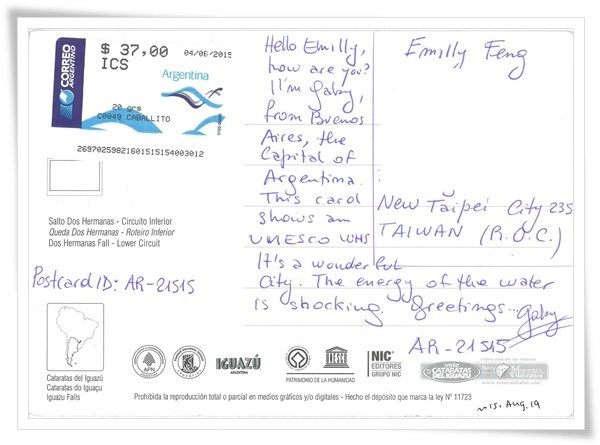 CORREO ARGENTINO
$ 37,00
ICS
04/08/2015
Argentina
20 grs
C0049 CABALLITO
26970259821601515154003012
Hello Emilly,
how are you?
I'm Gaby,
from Buenos
Aires, the
Capital of
Argentina.
This card
shows an
UNESCO WHS
It's a wonderful
City. The energy of the water
is shocking. Greetings...
Gaby
AR-21515
Emilly Feng
New Taipei City 235
TAIWAN (R.O.C.)
Salto Dos Hermanas - Circuito Inferior
Queda Dos Hermanas - Roteiro Inferior
Dos Hermanas Fall - Lower Circuit
Postcard ID: AR-21515
Cataratas del Iguazú
Cataratas do Iguaçu
Iguazu Falls
APN
IGUAZÚ
ARGENTINA
PATRIMONIO DE LA HUMANIDAD
UNESCO
NIC
EDITORES
GRUPO NIC
VOTÁ
CATARATAS
DEL IGUAZÚ
Prohibida la reproducción total o parcial en medios gráficos y/o digitales - Hecho el depósito que marca la ley N° 11723
n15. Aug. 19